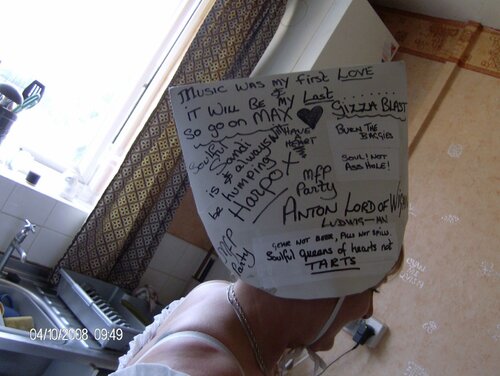 MUSIC WAS MY FIRST LOVE
&
IT WILL BE MY Last
So go on MAX
GIZZA BLAST
HAVE
HEART
BURN THE
BAGGIES
Soulful
Sandi
is & always will
be humping
HARPO X
SOUL! NOT
ASS HOLE!
MFP
Party
ANTON LORD OF
LUDWIG-AN
MFP
Party
Soulful Queens of hearts not
TARTS
04/10/2008 09:49